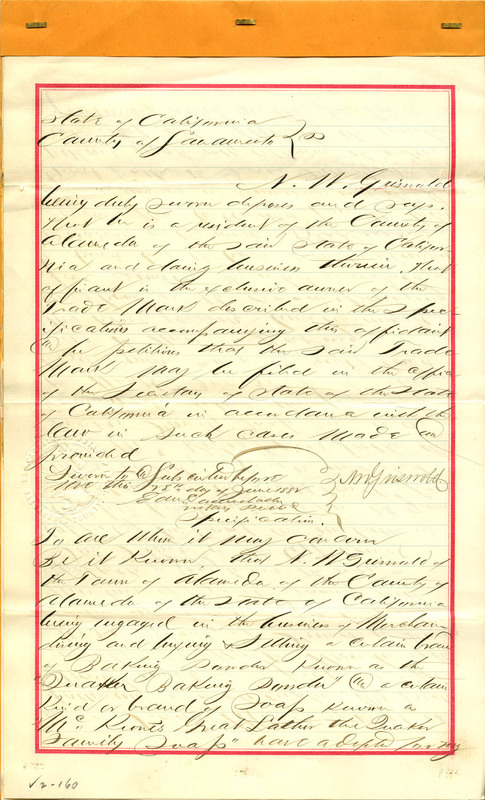 State of California
County of Sacramento } ss
N. W. Griswold
being duly sworn deposes and says.
that he is a resident of the County of
Alameda of the said State of Califor
nia and doing business therein. that
affiant is the exclusive owner of the
Trade Mark described in the speci
fications accompanying this affidavit
& he petitions that the said Trade
Mark may be filed in the office
of the Secretary of State of the State
of California in accordance with the
law in such cases made &
provided
Sworn to & Subscribed before
me this 28th day of June 1882
Notary Public
N W Griswold
Specification.
To all whom it may concern
Be it Known, that N. W Griswold of
the Town of Alameda of the County of
Alameda of the State of California
being engaged in the business of Merchan
dising and buying & selling a certain brand
of Baking Powder Known as the
"Quaker Baking Powder" & a certain
Kind or brand of Soap Known as
Great Father the Quaker
Family Soap" have adopted for my
V2-160